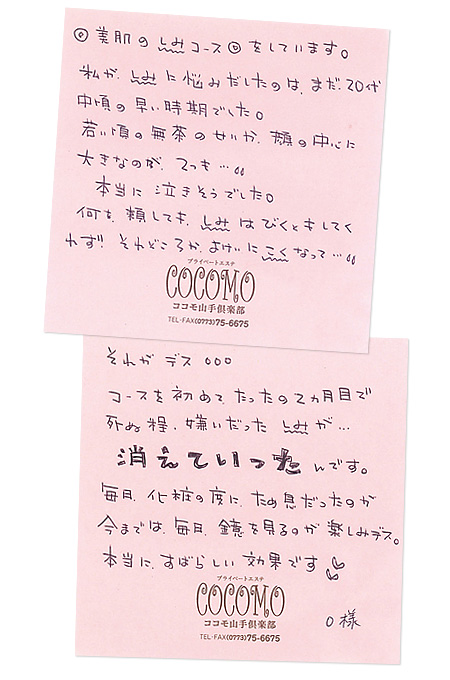 ◎美肌のしみコース◎をしています。
私が、しみに悩みだしたのは、まだ、20代
中頃の早い時期でした。
若い頃の無茶のせいか、頬の中心に
大きなのが、2つも…。。
本当に泣きそうでした。
何を、頼しても、しみはびくともしてく
れず! それどころか、よけいにこくなって…。。
プライベートエステ
COCOMO
ココモ山手倶楽部
TEL・FAX(0773)75-6675
それがデス 。。。
コースを初めて、たったの2ヵ月目で
死ぬ程、嫌いだったしみが…
消えていったんです。
毎日、化粧の度に、ため息だったのが
今までは、毎日、鏡を見るのが楽しみデス。
本当に、すばらしい効果です
プライベートエステ
COCOMO
ココモ山手倶楽部
TEL・FAX(0773)75-6675
O様